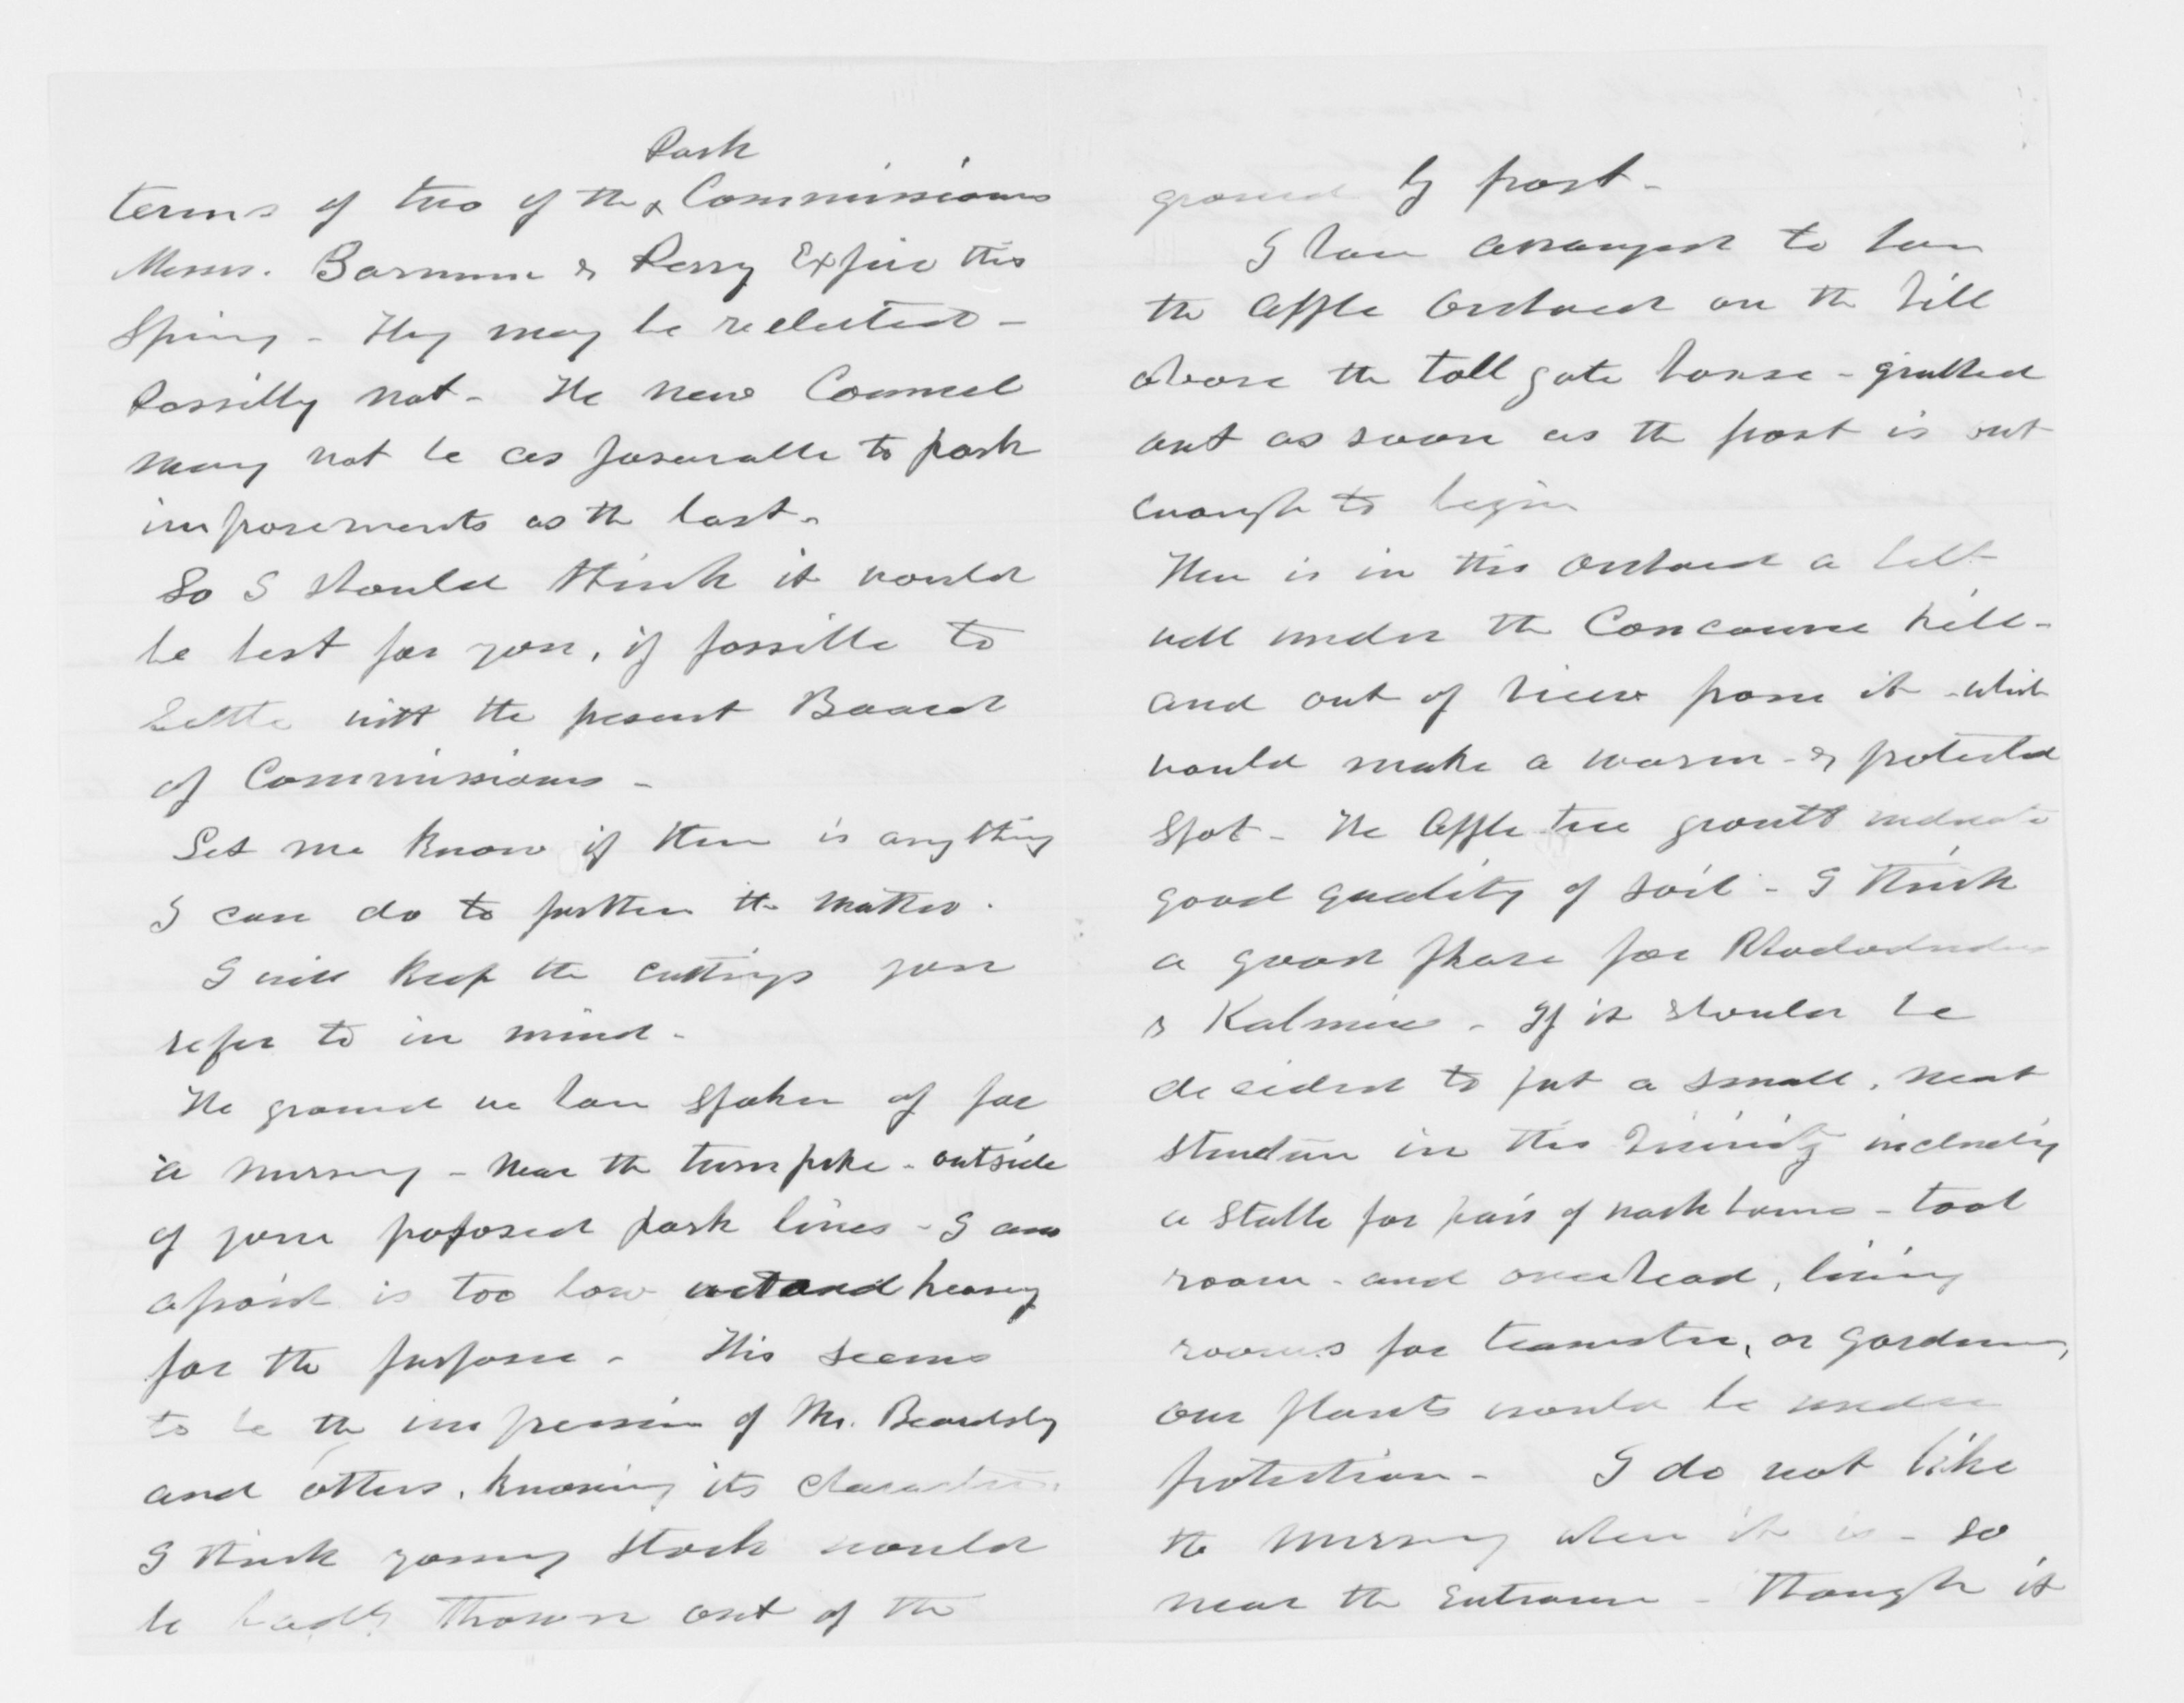 Park
terms of two of the ^ Commissioners
Messrs. Barnum & Perry Expire this
Spring - They may be reelected -
Possibly not - The new Council
may not be as favourable to park
improvements as the last.
So I should think it would
be best for you, if possible to
Settle with the present Board
of Commissioners -
Let me know if there is anything
I can do to further the matter.
I will keep the cuttings you
refer to in mind -
The ground we have spoken of for
a nursery - near the turnpike - outside
of your proposed park lines - I am
afraid is too low wet and heavy
for the purpose - This seems
to be the impression of Mr. Beardsley
and others, knowing its character.
I think young stock would
be badly thrown out of the
ground by frost -
I have arranged to have
the apple orchard on the hill
above the toll gate house - grubbed
out as soon as the frost is out
enough to begin
There is in this orchard a belt
well under the Concourse hill -
and out of view from it - which
would make a warm - & protected
Spot - The apple tree growth indicate
good quality of soil - I think
a good place for Rhododendrons
& Kalmias - If it should be
decided to put a small, neat
structure in this vicinity including
a stable for pair of work horses - tool
room - and overhead, living
rooms for teamster, or gardener,
our plants would be under
protection - I do not like
the nursery where it is - so
near the Entrance - though it